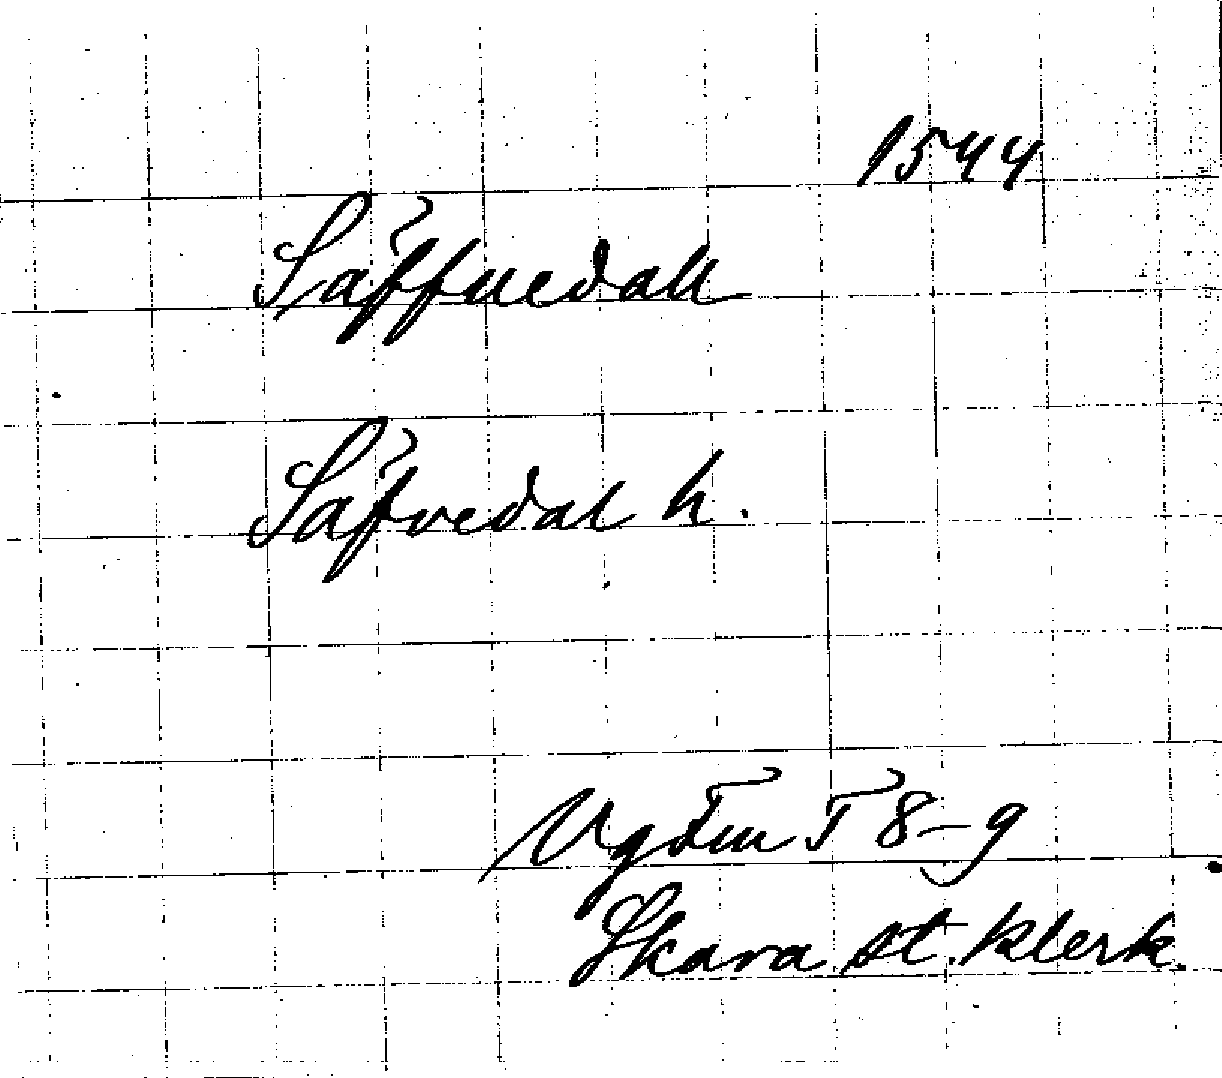 1544
Säffuedall
Säfvedal h.
8-9
Skara st. klerk.